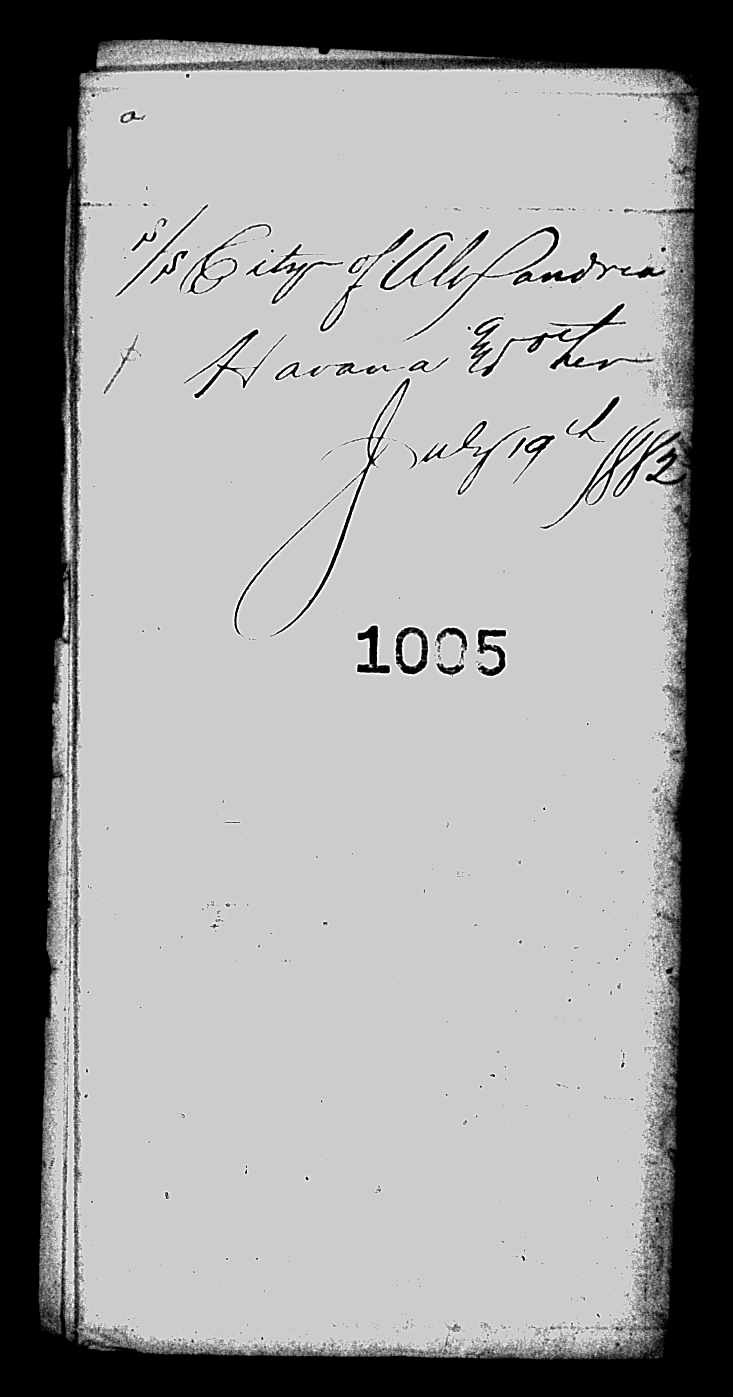 a
S/S City of Alexandria
Havana &
July 19th 1882
1005